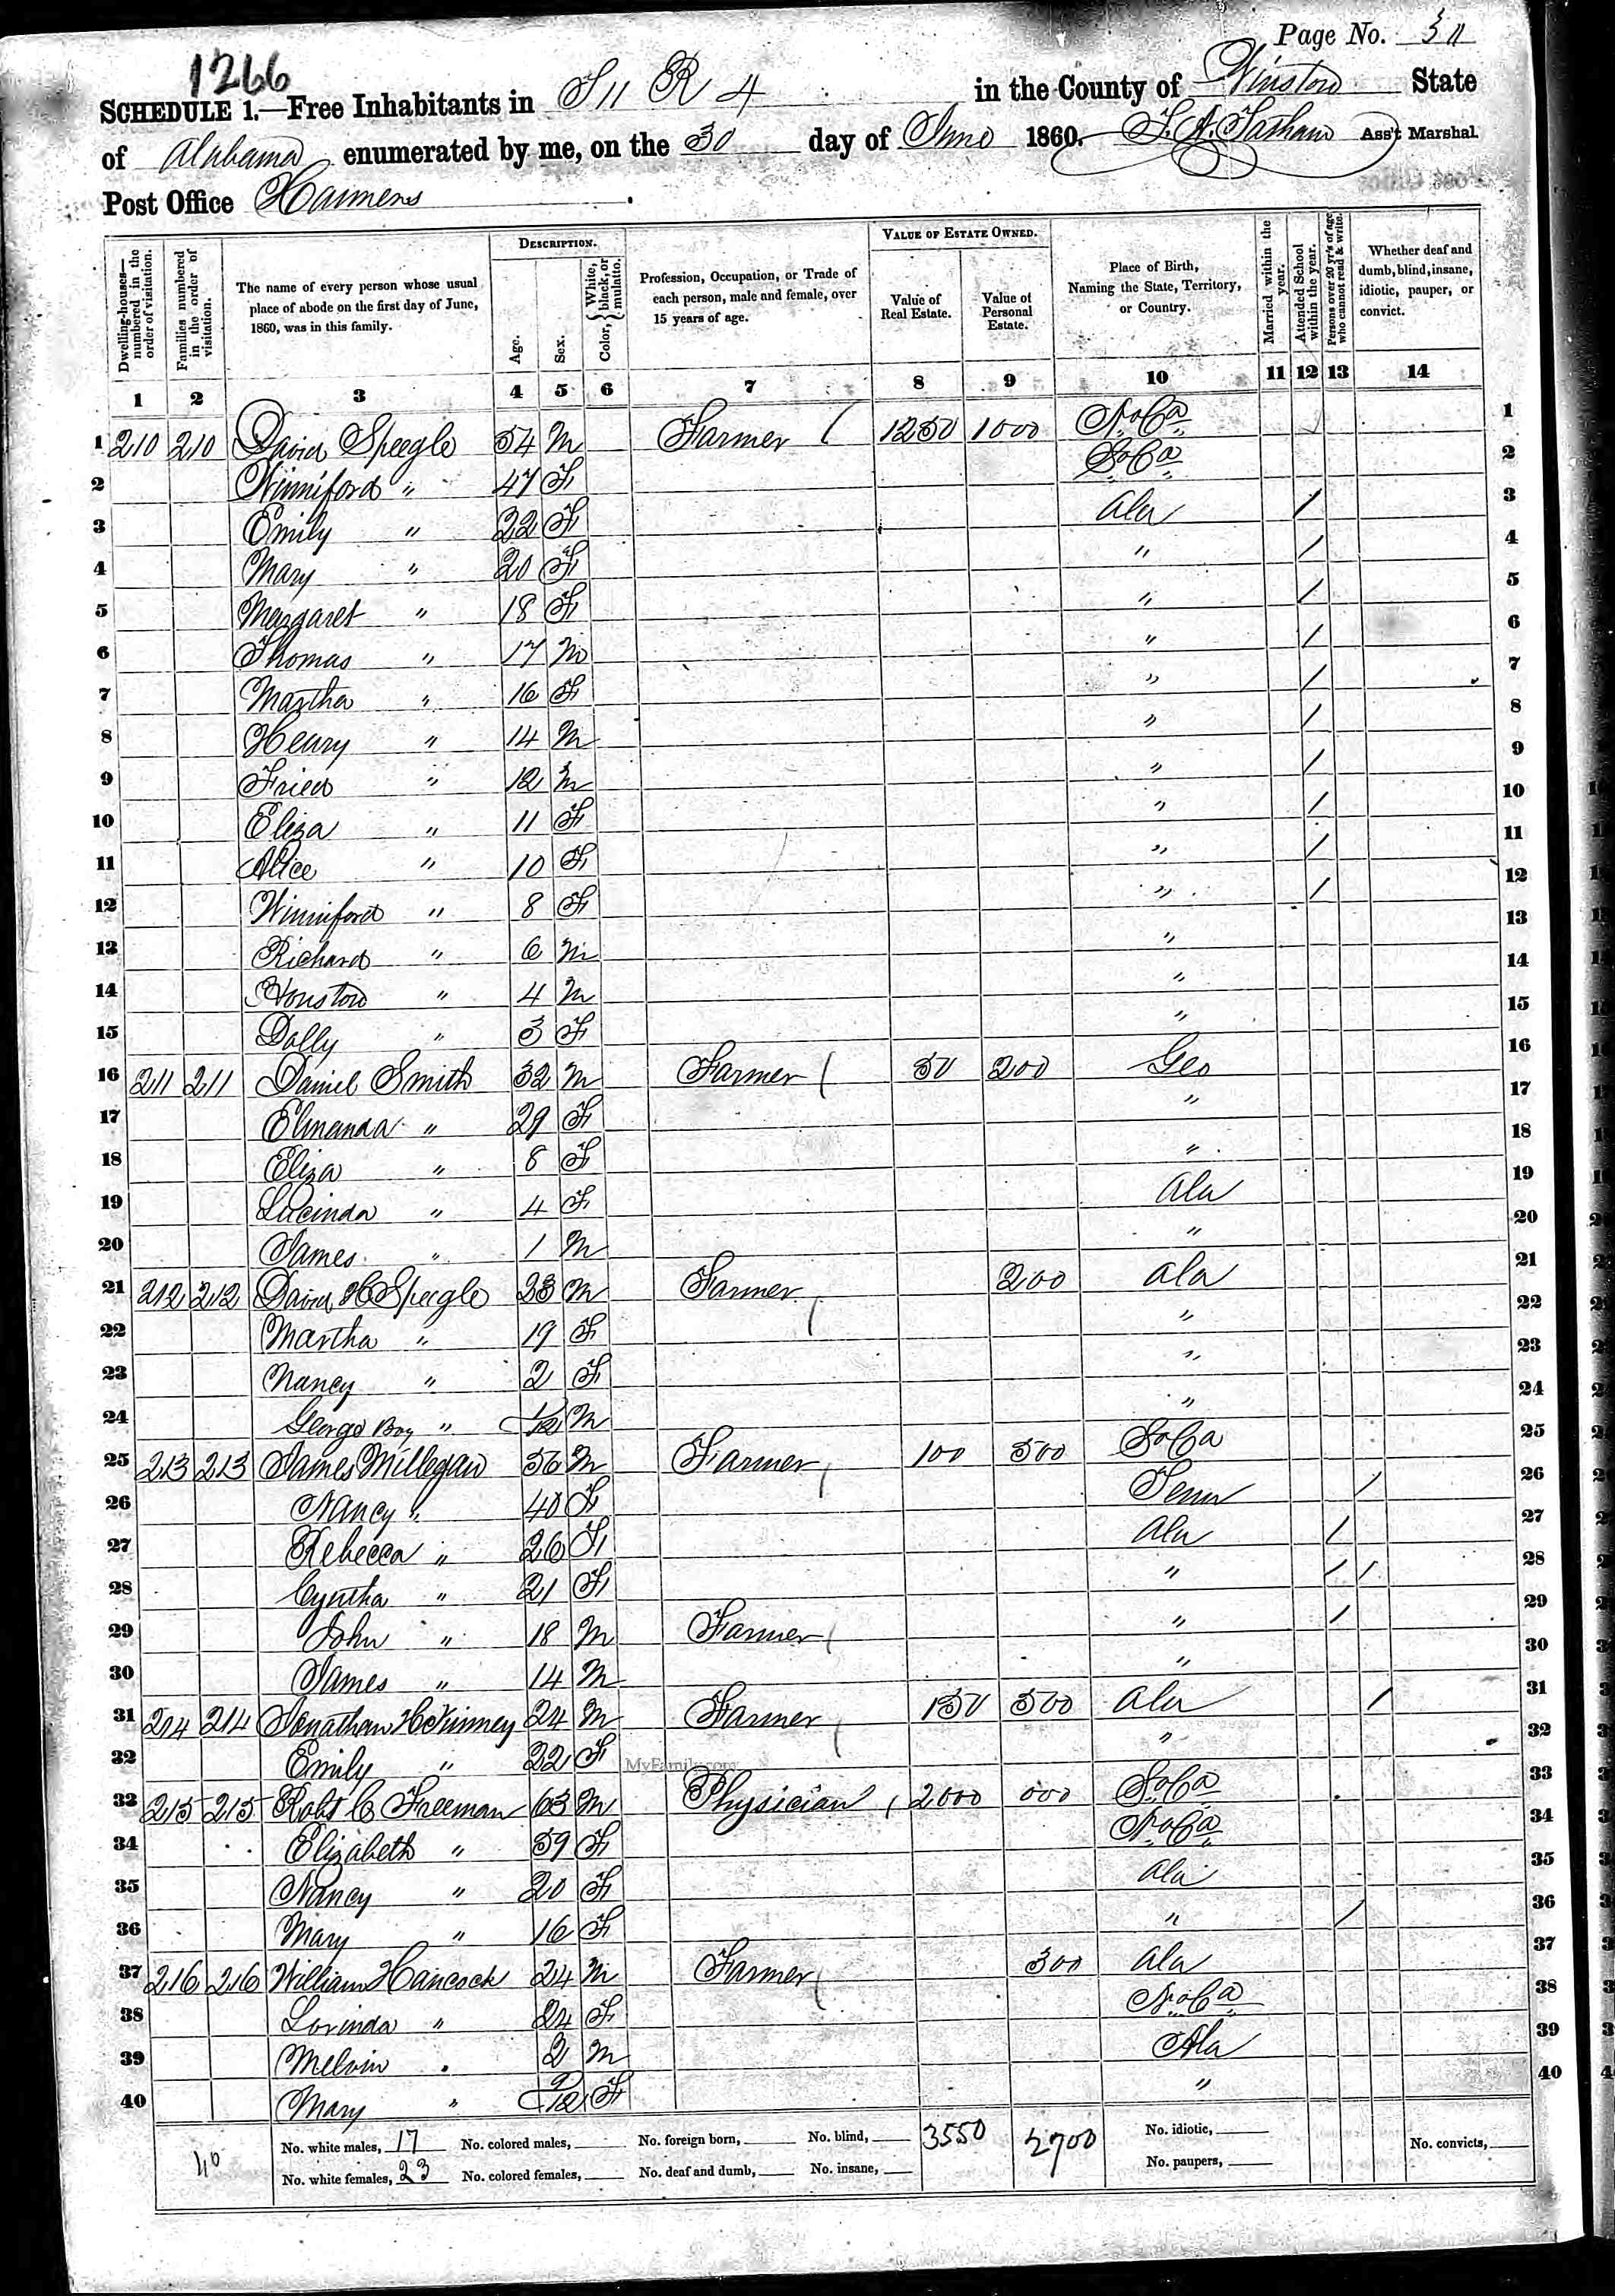 Page No. 30
1266
SCHEDULE 1.—Free Inhabitants in T 11 R 4 in the County of Winston State
of Alabama enumerated by me, on the 30 day of June 1860. Ass't Marshal.
Post Office
Dwelling-houses—numbered in the order of visitation.
Families numbered in the order of visitation.
The name of every person whose usual place of abode on the first day of June, 1860, was in this family.
DESCRIPTION.
Age.
Sex.
Color, { White, black, or mulatto.
Profession, Occupation, or Trade of each person, male and female, over 15 years of age.
VALUE OF ESTATE OWNED.
Value of Real Estate.
Value of Personal Estate.
Place of Birth, Naming the State, Territory, or Country.
Married within the year.
Attended School within the year.
Persons over 20 yr's of age who cannot read & write.
Whether deaf and dumb, blind, insane, idiotic, pauper, or convict.
1 2 3 4 5 6 7 8 9 10 11 12 13 14
1 210 210 David Speegle 54 M Farmer 1250 1000 No Ca 1
2 Winniford " 47 F So Ca 2
3 Emily " 22 F Ala / 3
4 Mary " 20 F " / 4
5 Margaret " 18 F " / 5
6 Thomas " 17 M " / 6
7 Martha " 16 F " / 7
8 Henry " 14 M " / 8
9 " 12 M " / 9
10 Eliza " 11 F " / 10
11 Alice " 10 F " / 11
12 Winniford " 8 F " / 12
13 Richard " 6 M " 13
14 Houston " 4 M " 14
15 Dolly " 3 F " 15
16 211 211 Daniel Smith 32 M Farmer 50 200 Geo 16
17 Elmanda " 29 F " 17
18 Eliza " 8 F " 18
19 Lucinda " 4 F Ala 19
20 James " 1 M " 20
21 212 212 David H Speegle 23 M Farmer 200 Ala 21
22 Martha " 19 F " 22
23 Nancy " 2 F " 23
24 George " 1/12 M " 24
25 213 213 James Millegan 56 M Farmer 100 500 So Ca 25
26 Nancy " 40 F Tenn / 26
27 Rebecca " 26 F Ala / 27
28 Cyntha " 21 F " / / 28
29 John " 18 M Farmer " / 29
30 James " 14 M " 30
31 214 214 Jonathan McKinney 24 M Farmer 150 500 Ala / 31
32 Emily " 22 F " 32
MyFamily.com
33 215 215 Robt C Freeman 63 M Physician 2000 000 So Ca 33
34 Elizabeth " 59 F No Ca 34
35 Nancy " 20 F Ala 35
36 Mary " 16 F " / 36
37 216 216 William Hancock 24 M Farmer 300 Ala 37
38 Lorinda " 24 F No Ca 38
39 Melvin " 2 M Ala 39
40 Mary " 9/12 F " 40
40
No. white males, 17 No. colored males, No. foreign born, No. blind, 3550 2700 No. idiotic, No. convicts,
No. white females, 23 No. colored females, No. deaf and dumb, No. insane, No. paupers,